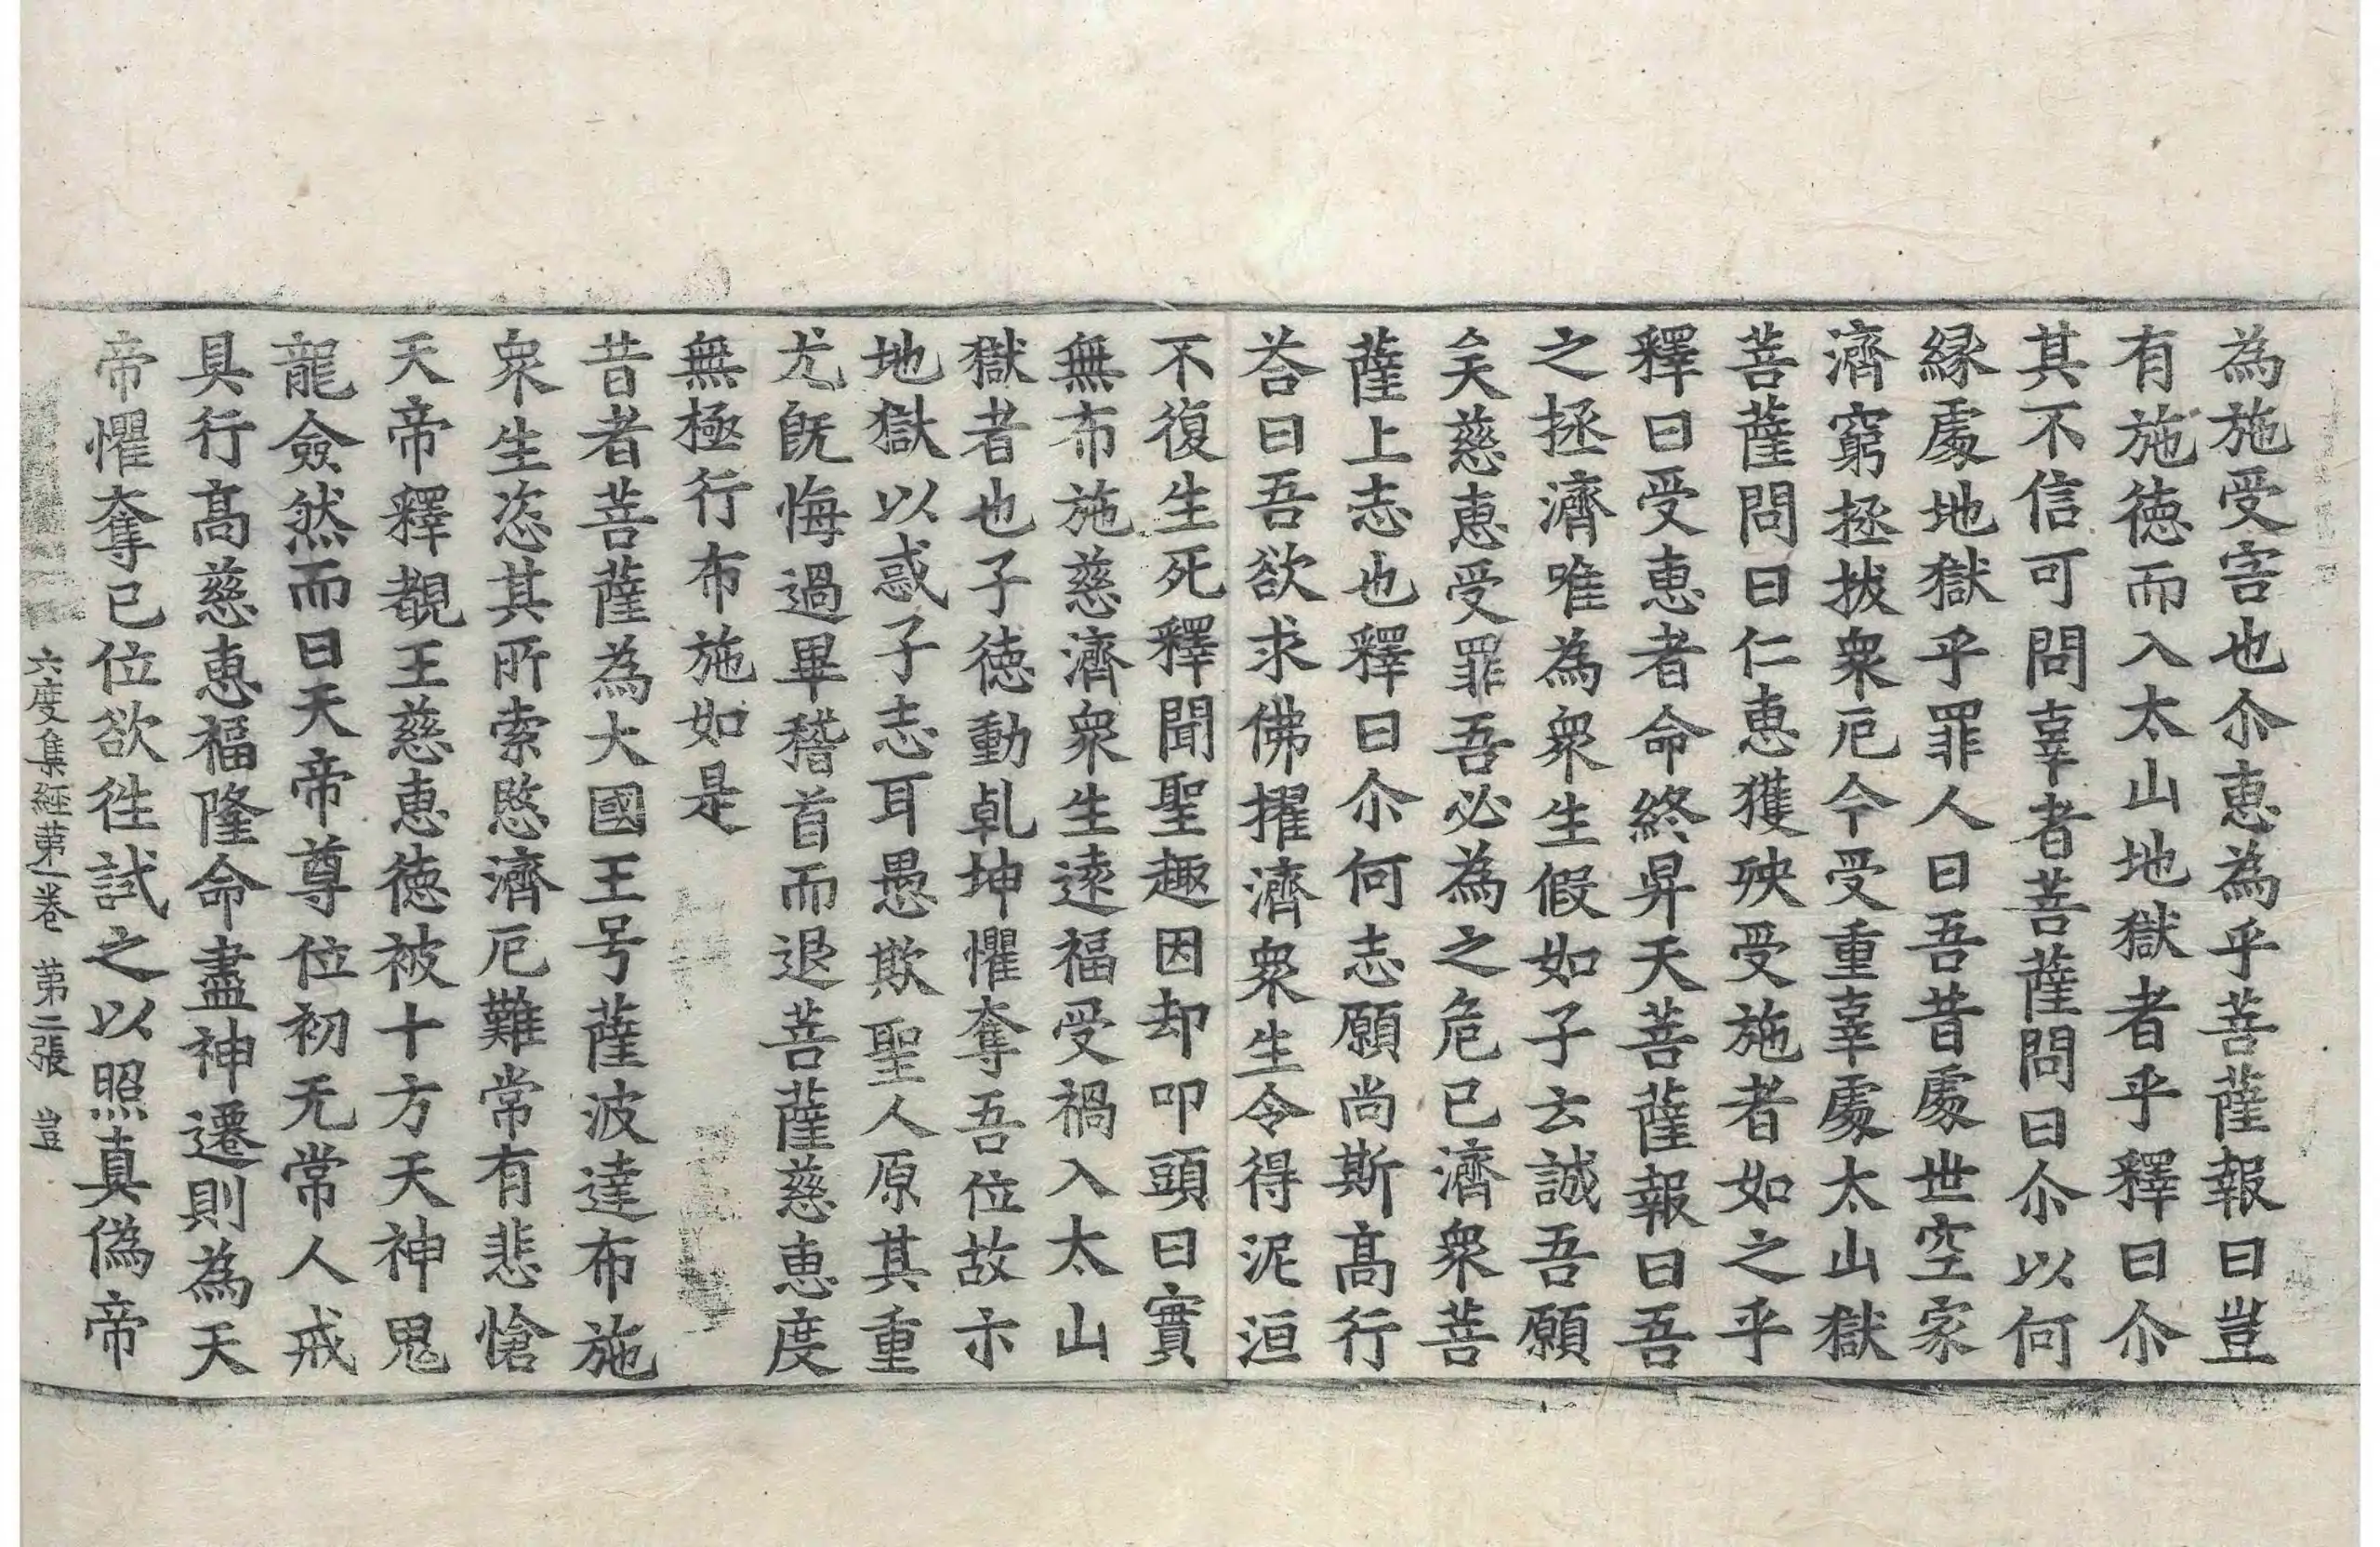 為施受害也尒惠為乎菩薩報曰豈
有施德而入太山地獄者乎釋曰尒
其不信可問辜者菩薩問曰尒以何
緣處地獄乎罪人曰吾昔處世空家
濟窮拯拔衆厄今受重辜處太山獄
菩薩問曰仁惠獲殃受施者如之乎
釋曰受惠者命終昇天菩薩報曰吾
之拯濟唯為衆生假如子云誠吾願
矣慈惠受罪吾必為之危已濟衆菩
薩上志也釋曰尒何志願尚斯高行
荅曰吾欲求佛擢濟衆生令得泥洹
不復生死釋聞聖趣因却叩頭曰實
無布施慈濟衆生遠福受禍入太山
獄者也子德動乹坤懼奪吾位故示
地獄以惑子志耳愚欺聖人原其重
尤旣悔過畢稽首而退菩薩慈惠度
無極行布施如是
昔者菩薩為大國王号薩波達布施
衆生恣其所索愍濟厄難常有悲愴
天帝釋覩王慈惠德被十方天神鬼
龍僉然而曰天帝尊位初无常人戒
具行高慈惠福隆命盡神遷則為天
帝懼奪已位欲徃試之以照真偽帝
六度集經第一卷 第二張 豈